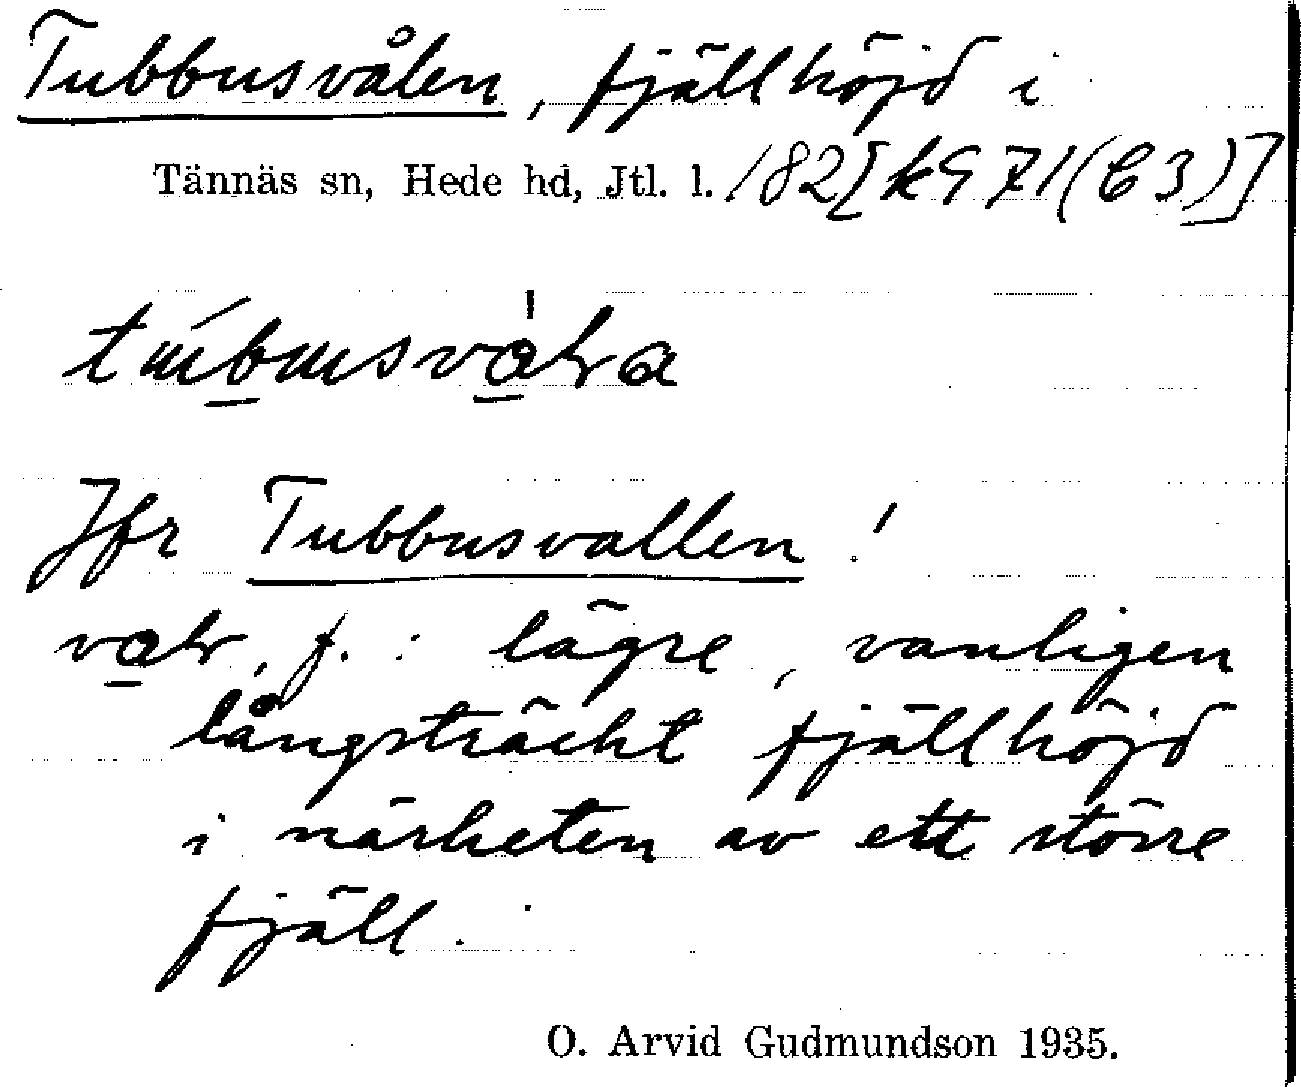 Tubbusvålen, fjällhöjd i
Tännäs sn, Hede hd, Jtl. l. 182[k971(C3)]
Jfr Tubbusvallen!
f.: lägre, vanligen
långsträckt fjällhöjd
i närheten av ett större
fjäll.
O. Arvid Gudmundson 1935.